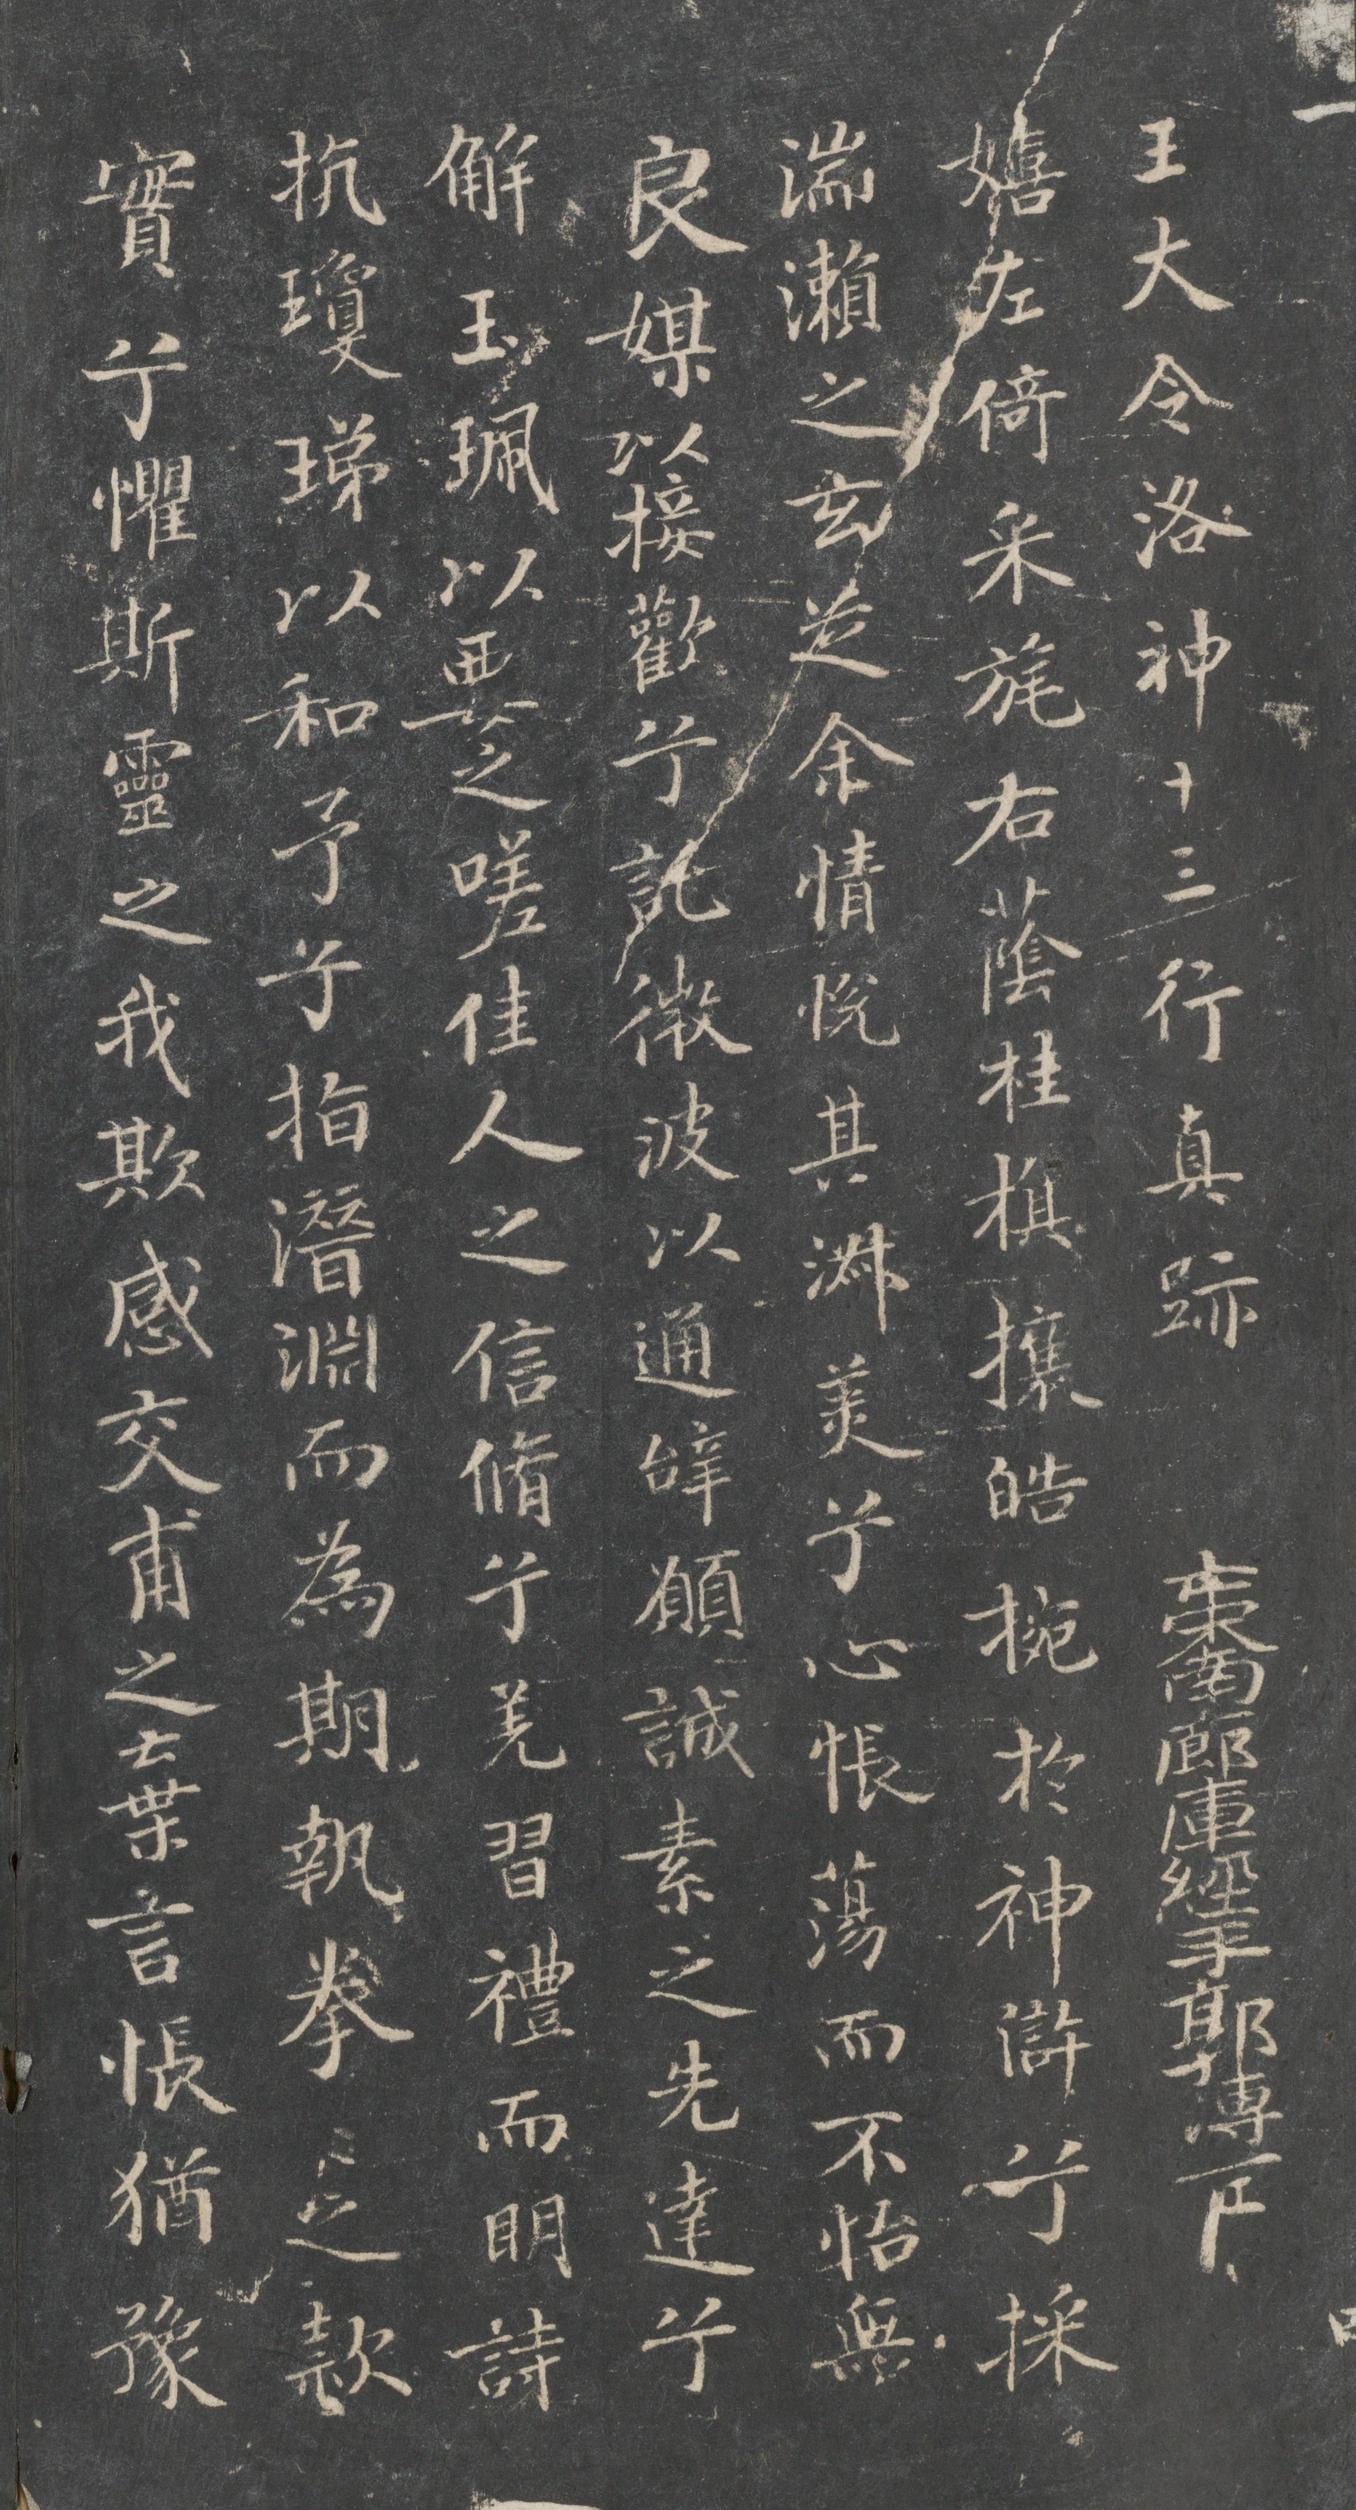 王大令洛神十三行真跡
嬉左倚采旄右蔭桂旗攘皓捥於神滸兮採
湍瀨之玄芝余情悅其淑美兮心悵蕩而不怡無
良媒以接歡兮託微波以通辭願誠素之先達兮
解玉珮以要之嗟佳人之信脩兮羌習禮而明詩
抗瓊珶以和予兮指潛淵而為期執拳之款
實兮懼斯靈之我欺感交甫之棄言悵猶豫